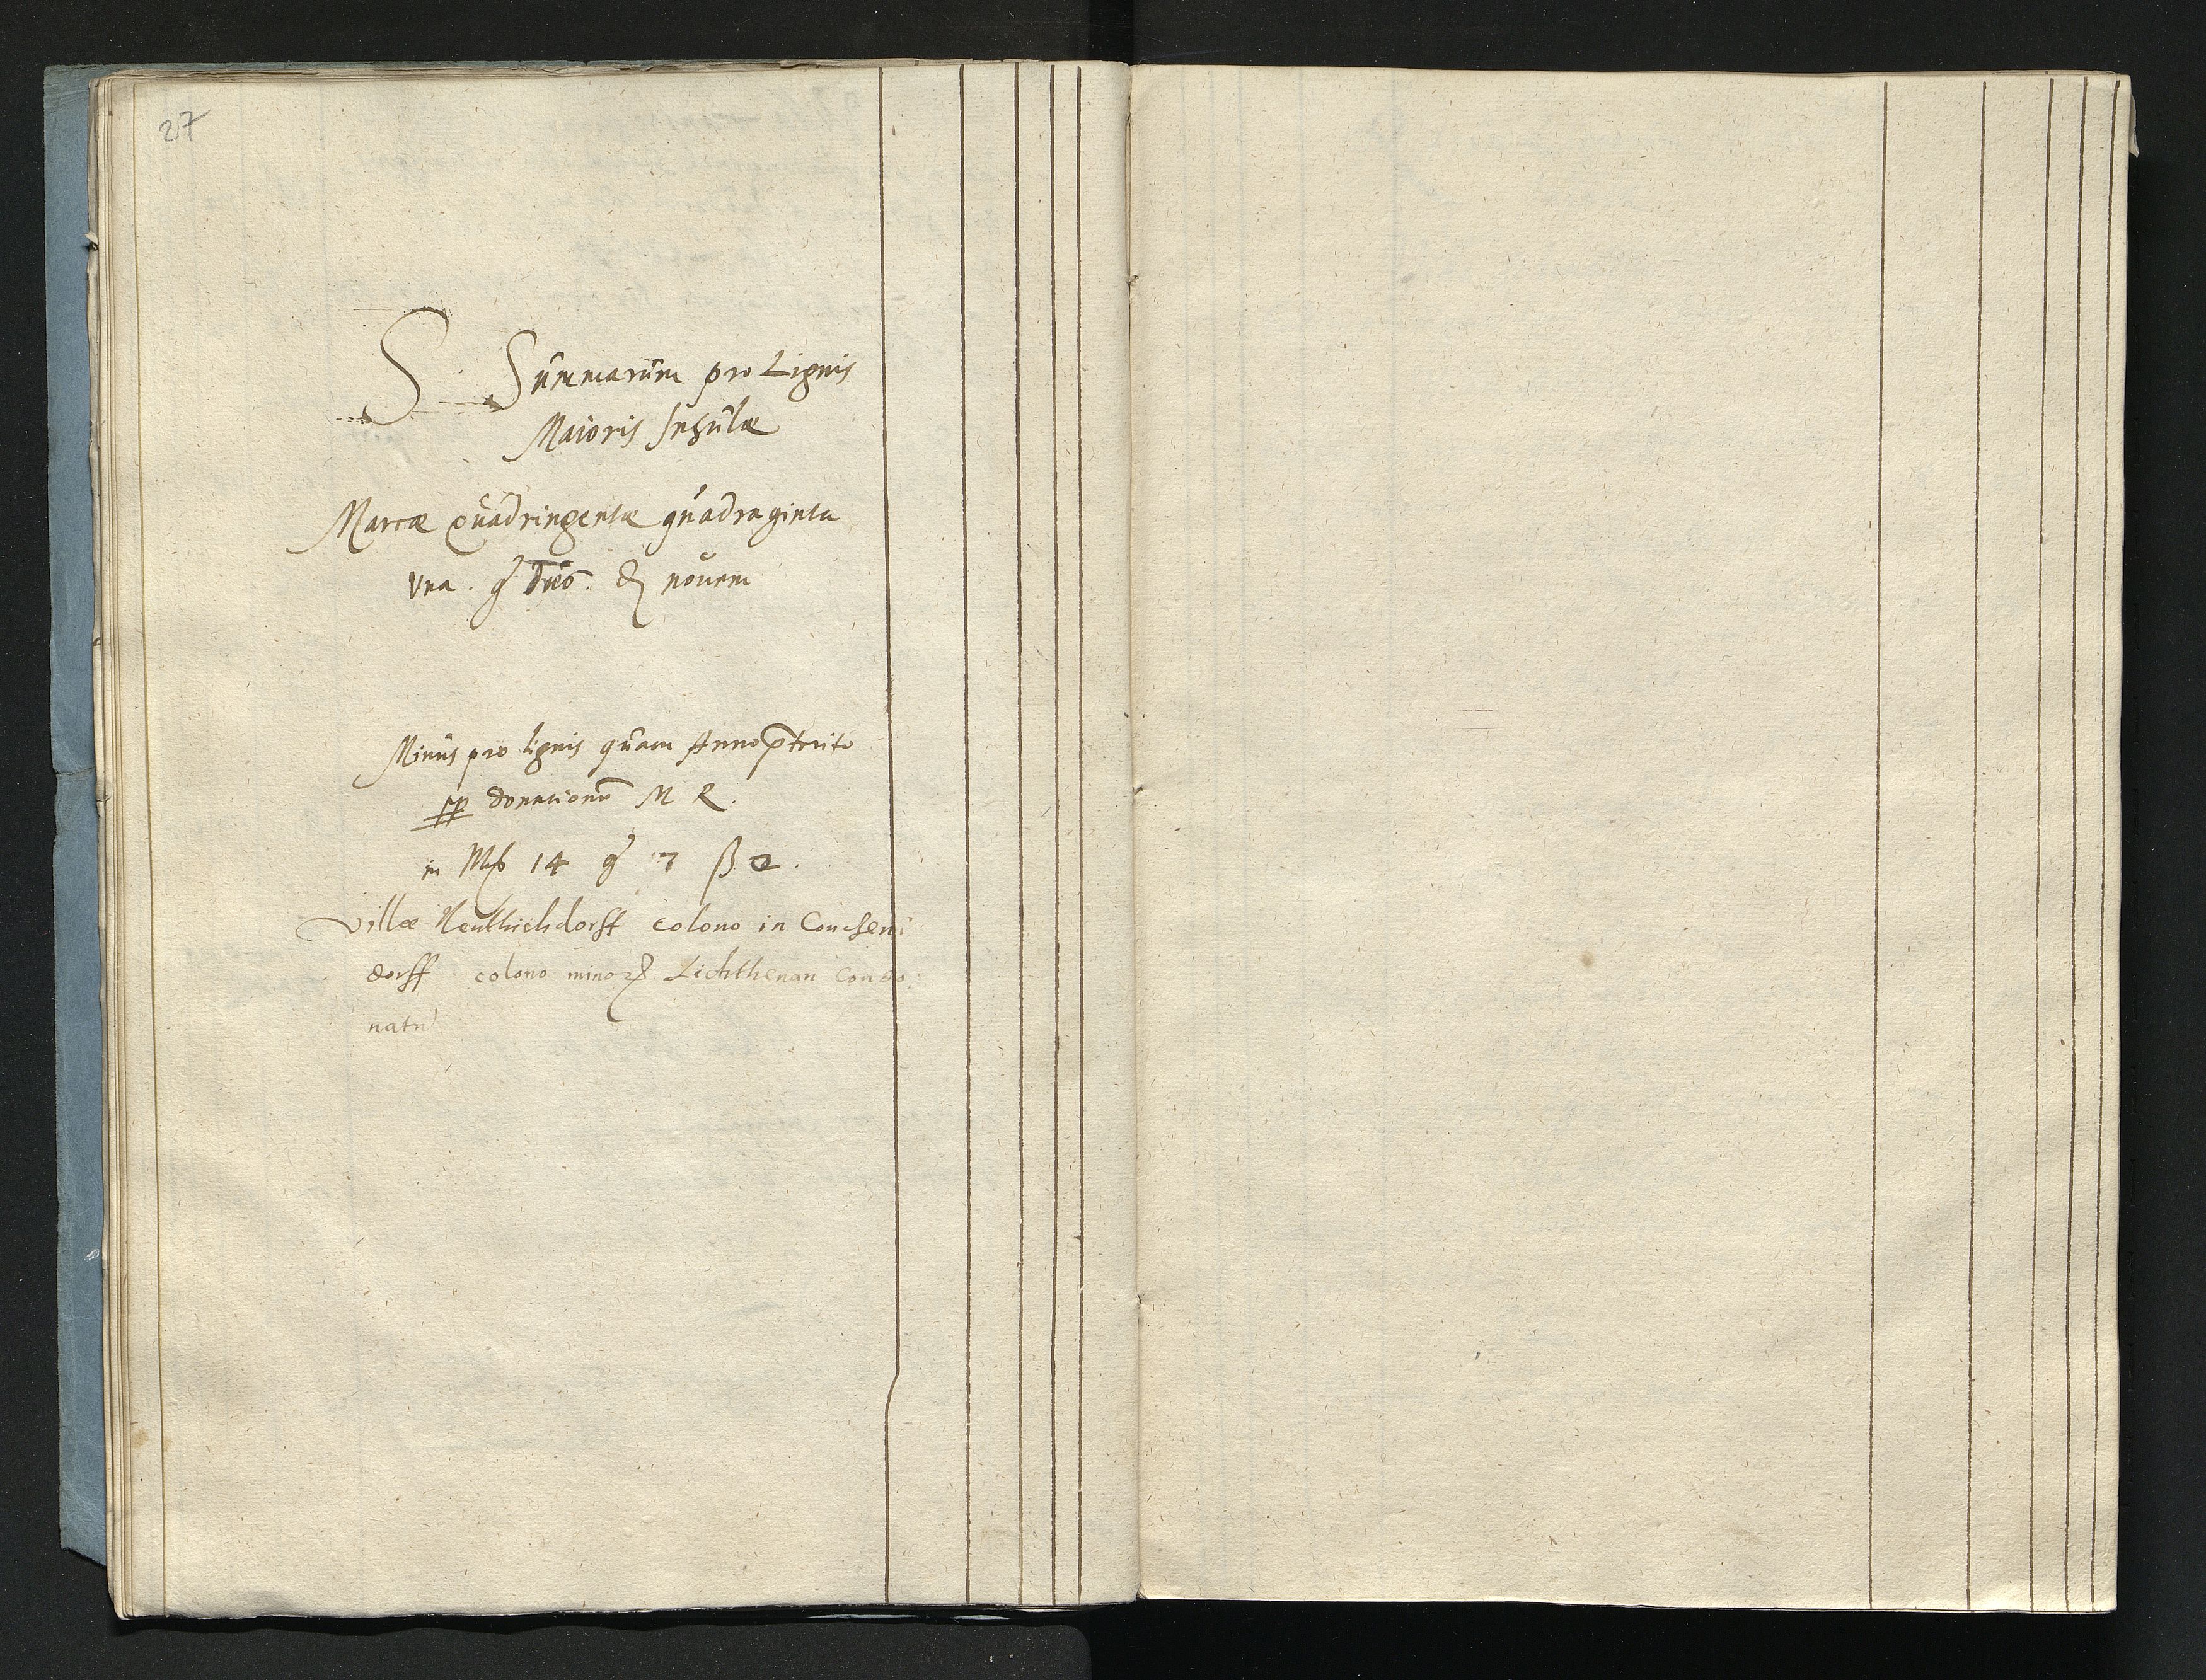 27
S Summarum pro Lignis
Maioris Insulæ
Marcæ quadringentæ quadraginta
vna . g duo . d novem
Minus pro lignis quam Anno ptterito
pp donationē M R .
in Mk 14 g 7 ß 2 .
villæ Neuthichdorff colono in
dorff colono minor Lichthenau Condo
natu